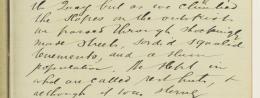 the Quay but as we climbed
the slopes on the outskirts
we passed through shocking
made streets, sordid squalid
tenements, and a slum
population. The Hotel in
what are called rest huts, &
although it was